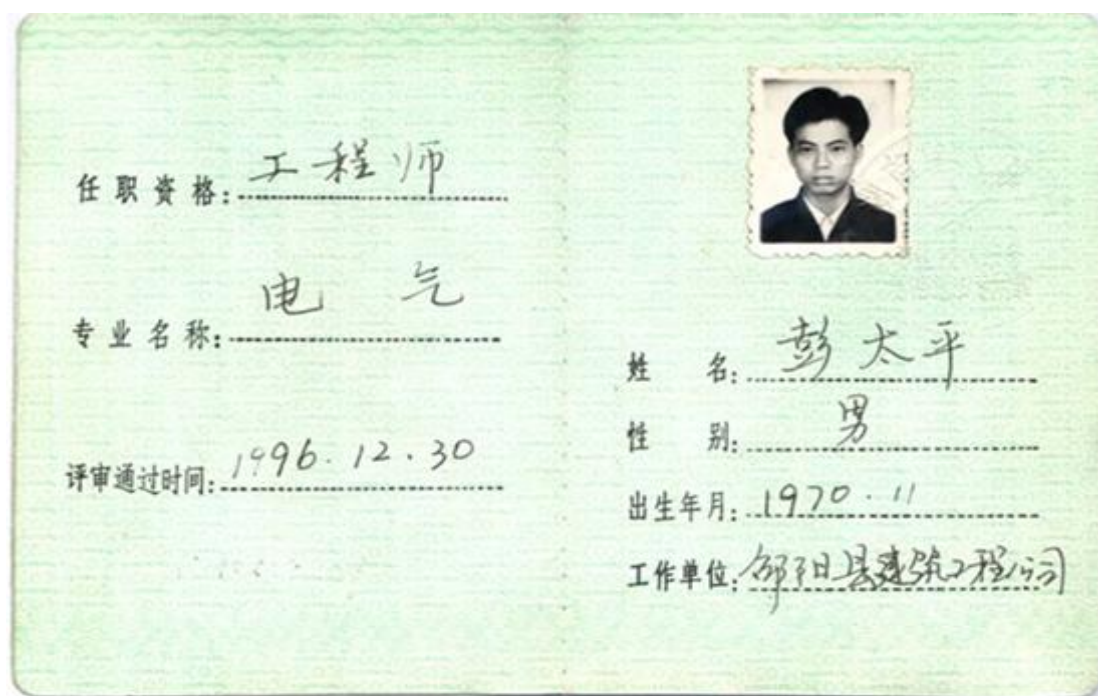 任职资格:工程师
专业名称:电气
评审通过时间:1996.12.30
姓名:彭太平
性别:男
出生年月:1970.11
工作单位:邵阳县建筑工程公司